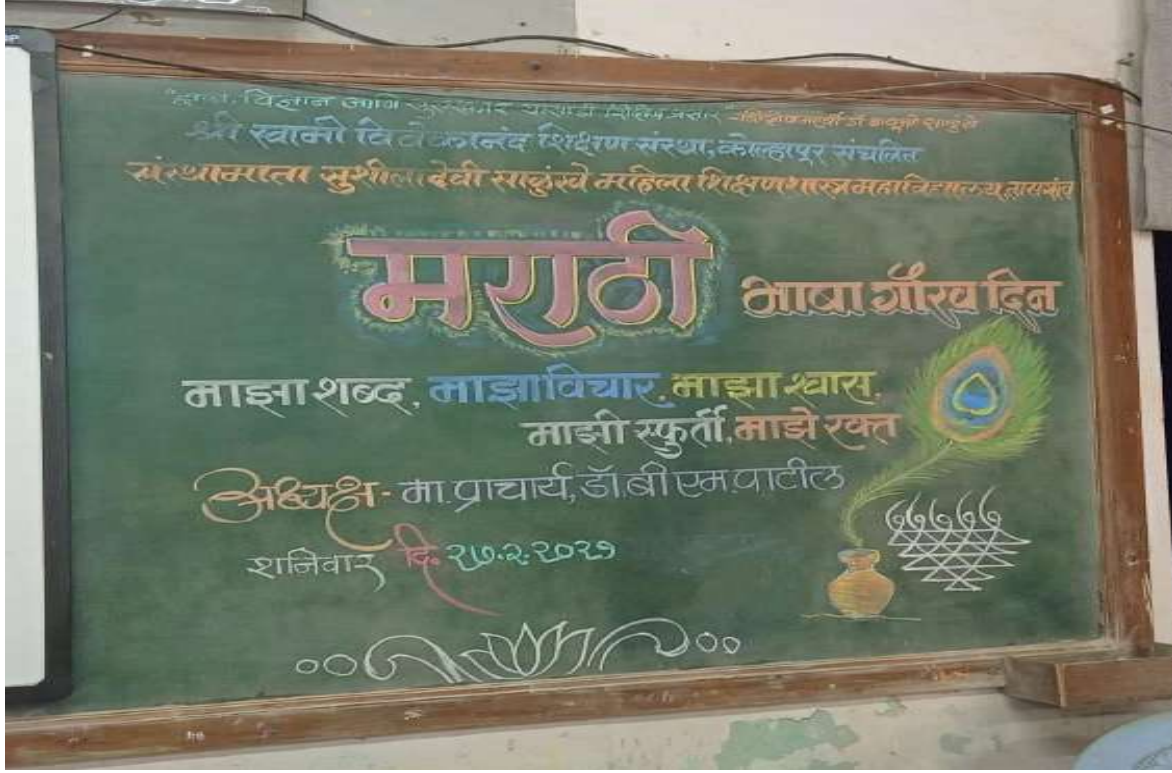 "ज्ञान, विज्ञान आणि सुसंस्कार यासाठी शिक्षण प्रसार" - शिक्षणमहर्षी डॉ बापूजी साळुंखे
श्री स्वामी विवेकानंद शिक्षण संस्था, कोल्हापूर संचलित
संस्थामाता सुशीलादेवी साळुंखे महिला शिक्षणशास्त्र महाविद्यालय, तासगांव
मराठी भाषा गौरव दिन
माझा शब्द, माझा विचार, माझा श्वास,
माझी स्फुर्ती, माझे रक्त
अध्यक्ष - मा. प्राचार्य, डॉ. बी एम. पाटील
शनिवार दि. २७.२.२०२१